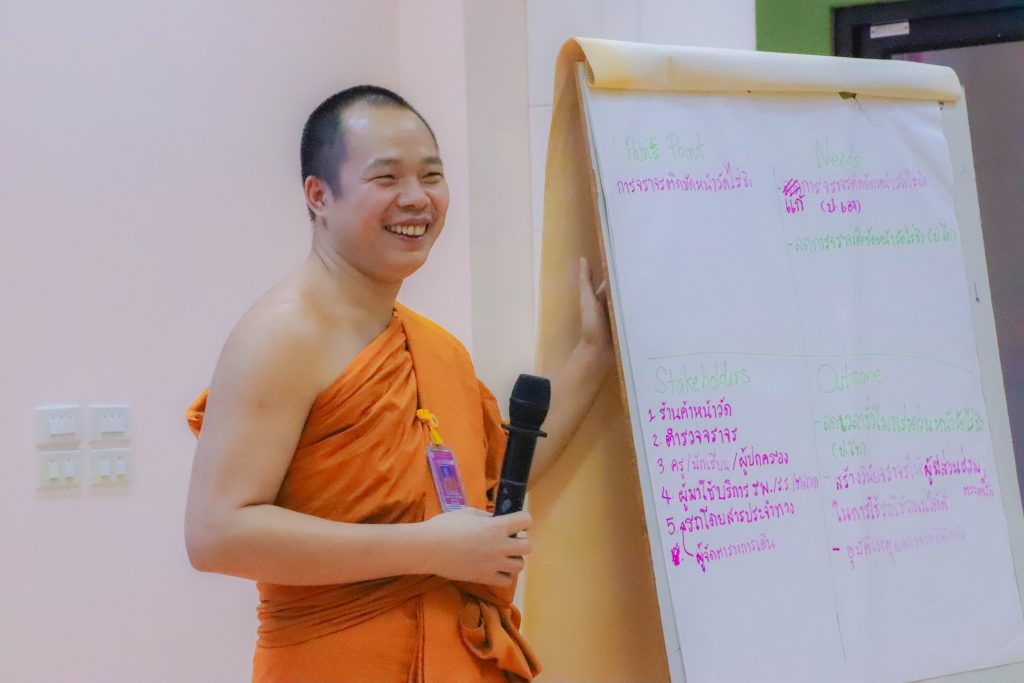 Pain Point
การจราจรติดขัดหน้าวัดไร่ขิง
Needs
การจราจรติดขัดหน้าวัดไร่ขิง
แก้
- ลดการจราจรติดขัดหน้าวัดไร่ขิง
Stakeholders
1. ร้านค้าหน้าวัด
2. ตำรวจจราจร
3. ครู/นักเรียน/ผู้ปกครอง
4. ผู้มาใช้บริการ รพ./ร.ร./ตลาด
5. รถโดยสารประจำทาง
ผู้จัดตารางการเดิน
Outcome
หน้าวัดไร่ขิง
- สร้างวินัยจราจรให้ผู้มีส่วนร่วม
ตระหนัก
ในการใช้รถใช้ถนนได้ดี
- อุบัติเหตุ